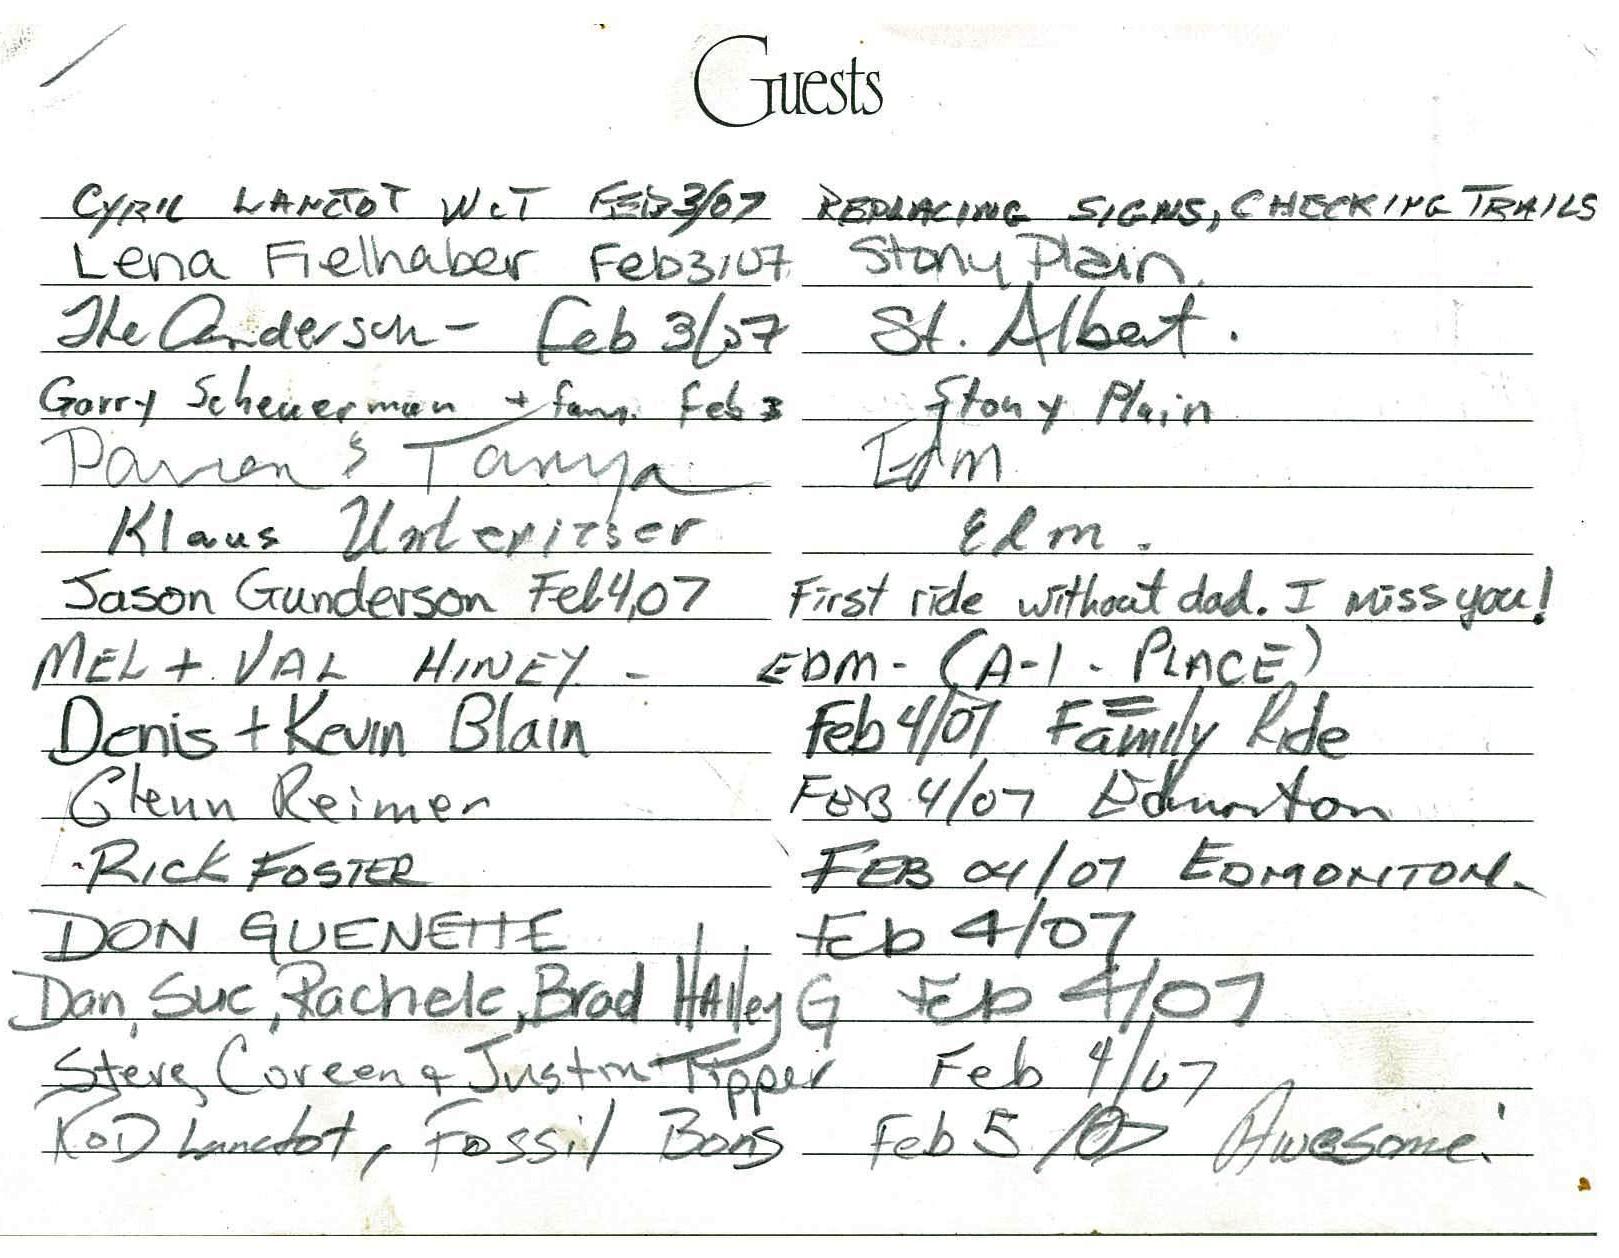 Guests
CYRIL LANCTOT WCT FEB 3/07 REPLACING SIGNS, CHECKING TRAILS
Lena Fielhaber Feb 3/07 Stony Plain.
The Anderson - Feb 3/07 St. Albert.
Garry Scheuerman + fam. Feb 3 Stony Plain
Darren & Tanya Edm
Klaus Edm.
Jason Gunderson Feb 4,07 First ride without dad. I miss you!
MEL + VAL HINEY - EDM - (A-1 - PLACE)
Denis + Kevin Blain Feb 4/07 Family Ride
Glenn Reimer FEB 4/07 Edmonton
RICK FOSTER FEB 04/07 EDMONTON.
DON GUENETTE Feb 4/07
Dan, Sue, Rachele, Brad HAIley G Feb 4/07
Steve, Coreen & Justin Tipper Feb 4/07
Lanctot, Fossil Feb 5/07 Awesome!